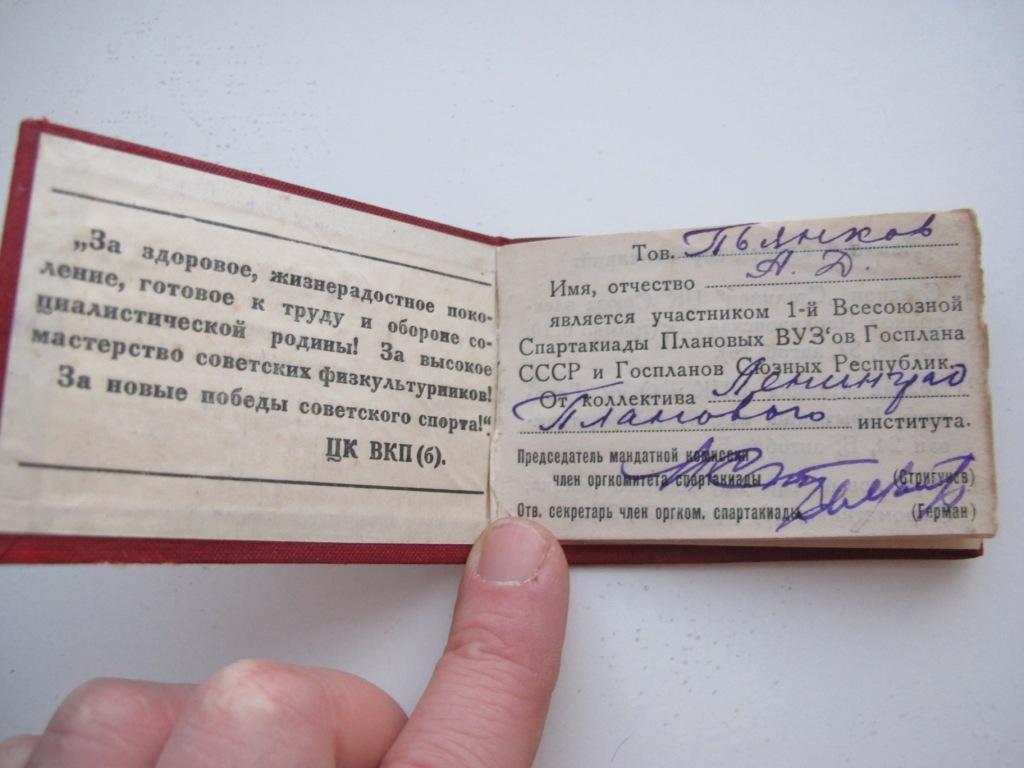 „За здоровое, жизнерадостное поко-
ление, готовое к труду и обороне со-
циалистической родины! За высокое
мастерство советских физкультурников!
За новые победы советского спорта!“
ЦК ВКП(б).
Тов. Пьянков
Имя, отчество А. Д.
является участником 1-й Всесоюзной
Спартакиады Плановых ВУЗ‘ов Госплана
СССР и Госпланов Союзных Республик.
От коллектива Ленинград
Планового института.
Председатель мандатной комиссии
член оргкомитета спартакиады (Стригунев)
Отв. секретарь член оргком. спартакиады (Герман)